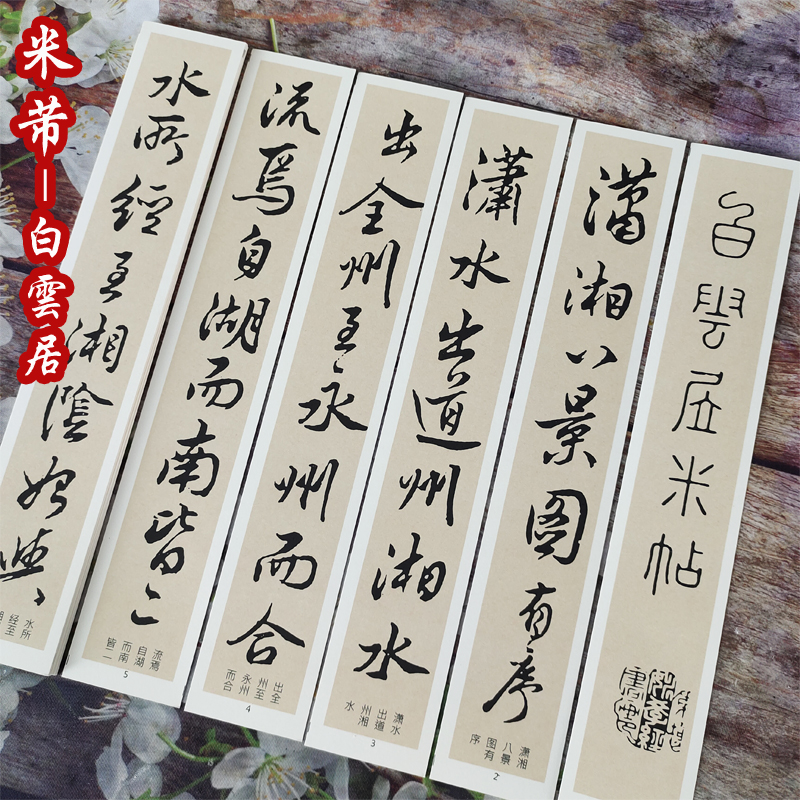 米芾—白雲居
白雲居米帖
瀟湘八景圖有序
潇湘
八景
图有
序
2
瀟水出道州湘水
潇水
出道
州湘
水
3
出全州至永州而合
出全
州至
永州
而合
4
流焉自湖而南皆二
流焉
自湖
而南
皆二
5
水所經至湘陰始與
水所
经至
湘